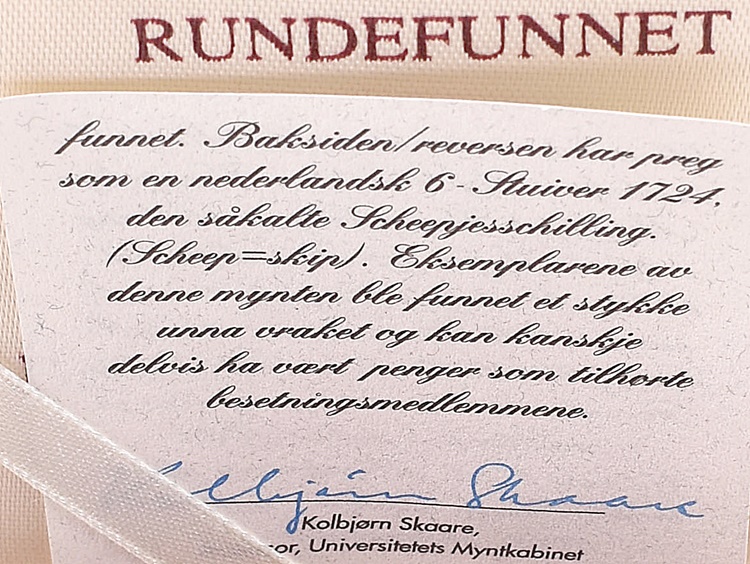 RUNDEFUNNET
funnet. Baksiden/reversen har preg
som en nederlandsk 6-Stuiver 1724,
den såkalte Scheepjesschilling.
(Scheep=skip). Eksemplarene av
denne mynten ble funnet et stykke
unna vraket og kan kanskje
delvis ha vært penger som tilhørte
besetningsmedlemmene.
Kolbjørn Skaare
Kolbjørn Skaare,
or, Universitetets Myntkabinet